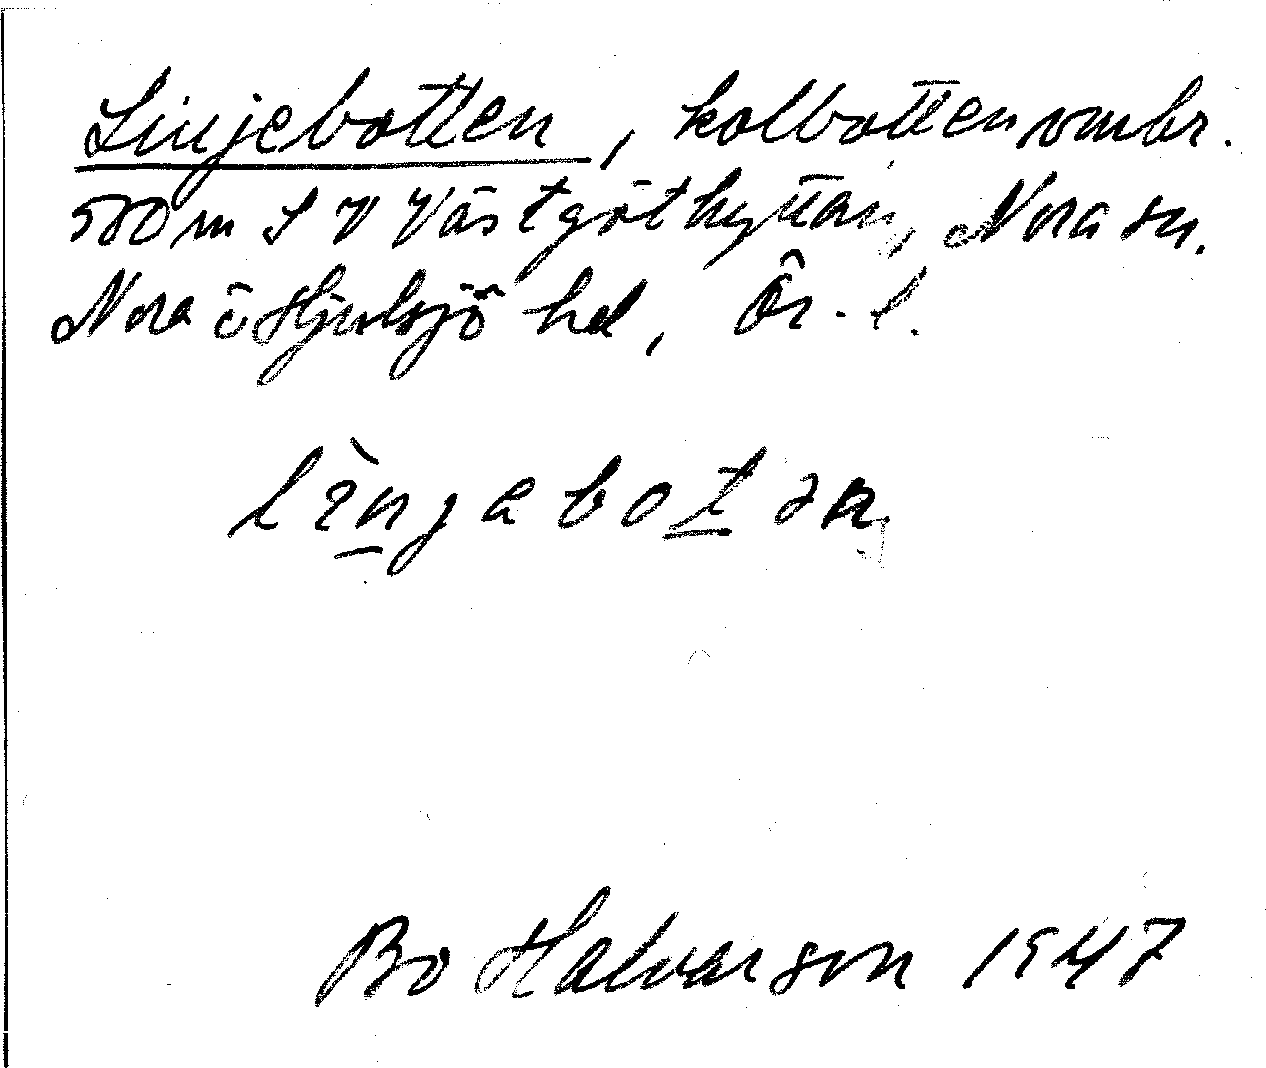 Linjebotten, kolbotten ombr.
500 m S V Västgöthyttan, Nora sn.
Nora ö Hjulsjö hd, Ör. l.
lìnjabotən
Bo Halvarson 1947